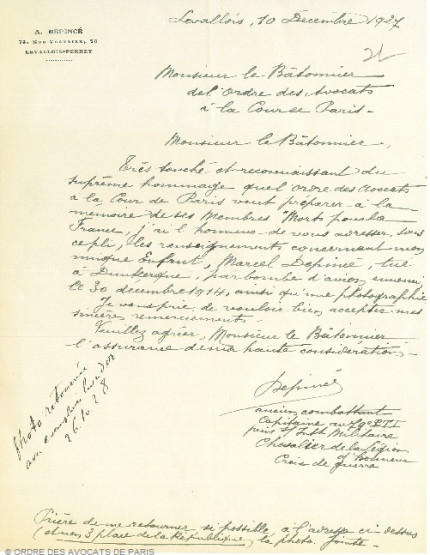 A. DÉPINCÉ
73, Rue Voltaire, 73
LEVALLOIS-PERRET
Levallois, 10 Décembre 1927
Monsieur le Bâtonnier
de l'Ordre des Avocats
à la Cour de Paris -
Monsieur le Bâtonnier,
Très touché et reconnaissant du
suprême hommage que l'ordre des Avocats
à la Cour de Paris veut préparer à la
mémoire de ses Membres "Morts pour la
France", j'ai l'honneur de vous adresser, sous
ce pli, les renseignements concernant mon
unique Enfant, Marcel Dépincé, tué
à Dunkerque, par bombe d'avion ennemi
le 30 décembre 1914, ainsi qu'une photographie
Je vous prie de vouloir bien accepter mes
sincères remerciements.
Veuillez agréer, Monsieur le Bâtonnier
l'assurance de ma haute considération.
Dépincé
ancien combattant
Capitaine au
Militaire
Chevalier de la Légion
d'Honneur
Croix de guerre
photo retournée
26.10.28
Prière de me retourner, si possible, à l'adresse ci-dessus
(et non 3 place de la République), la photo jointe
© ORDRE DES AVOCATS DE PARIS